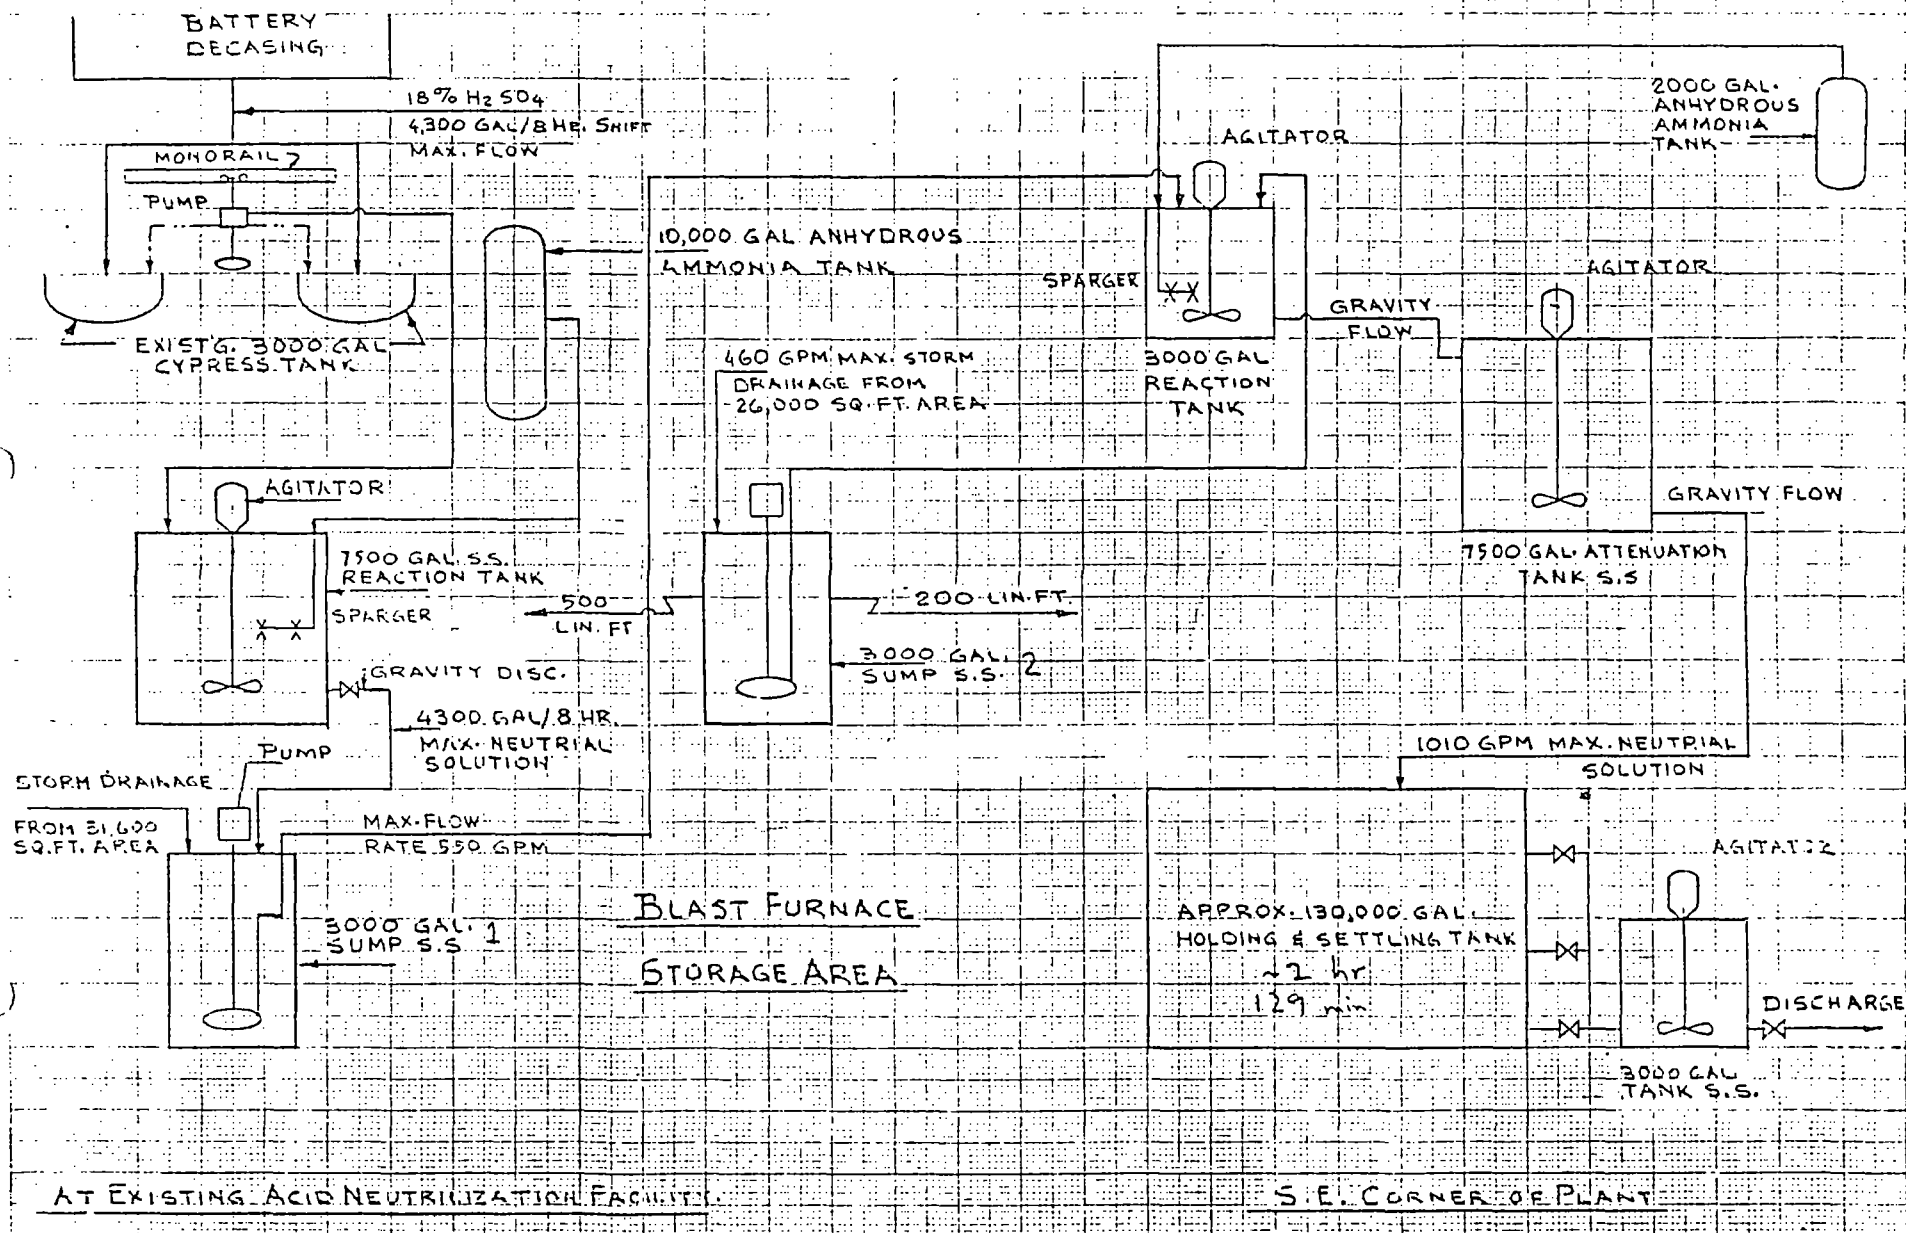 BATTERY
DECASING
18% H2SO4
4,300 GAL/8 HR. SHIFT
MAX. FLOW
MONORAIL
PUMP
EXIST'G. 3000 GAL
CYPRESS TANK
10,000 GAL ANHYDROUS
AMMONIA TANK
AGITATOR
2000 GAL.
ANHYDROUS
AMMONIA
TANK
SPARGER
3000 GAL
REACTION
TANK
GRAVITY
FLOW
AGITATOR
460 GPM MAX. STORM
DRAINAGE FROM
26,000 SQ.FT. AREA
GRAVITY FLOW
7500 GAL. ATTENUATION
TANK S.S
AGITATOR
7500 GAL. S.S.
REACTION TANK
SPARGER
500
LIN. FT
200 LIN. FT.
3000 GAL. 2
SUMP S.S.
GRAVITY DISC.
4300 GAL/8 HR.
MAX. NEUTRIAL
SOLUTION
PUMP
STORM DRAINAGE
FROM 31,600
SQ.FT. AREA
MAX. FLOW
RATE 550 GPM
3000 GAL. 1
SUMP S.S
1010 GPM MAX. NEUTRIAL
SOLUTION
BLAST FURNACE
STORAGE AREA
APPROX. 130,000 GAL.
HOLDING & SETTLING TANK
~2 hr
129 min
AGITATOR
DISCHARGE
3000 GAL
TANK S.S.
AT EXISTING ACID NEUTRILIZATION FACILITY.
S.E. CORNER OF PLANT